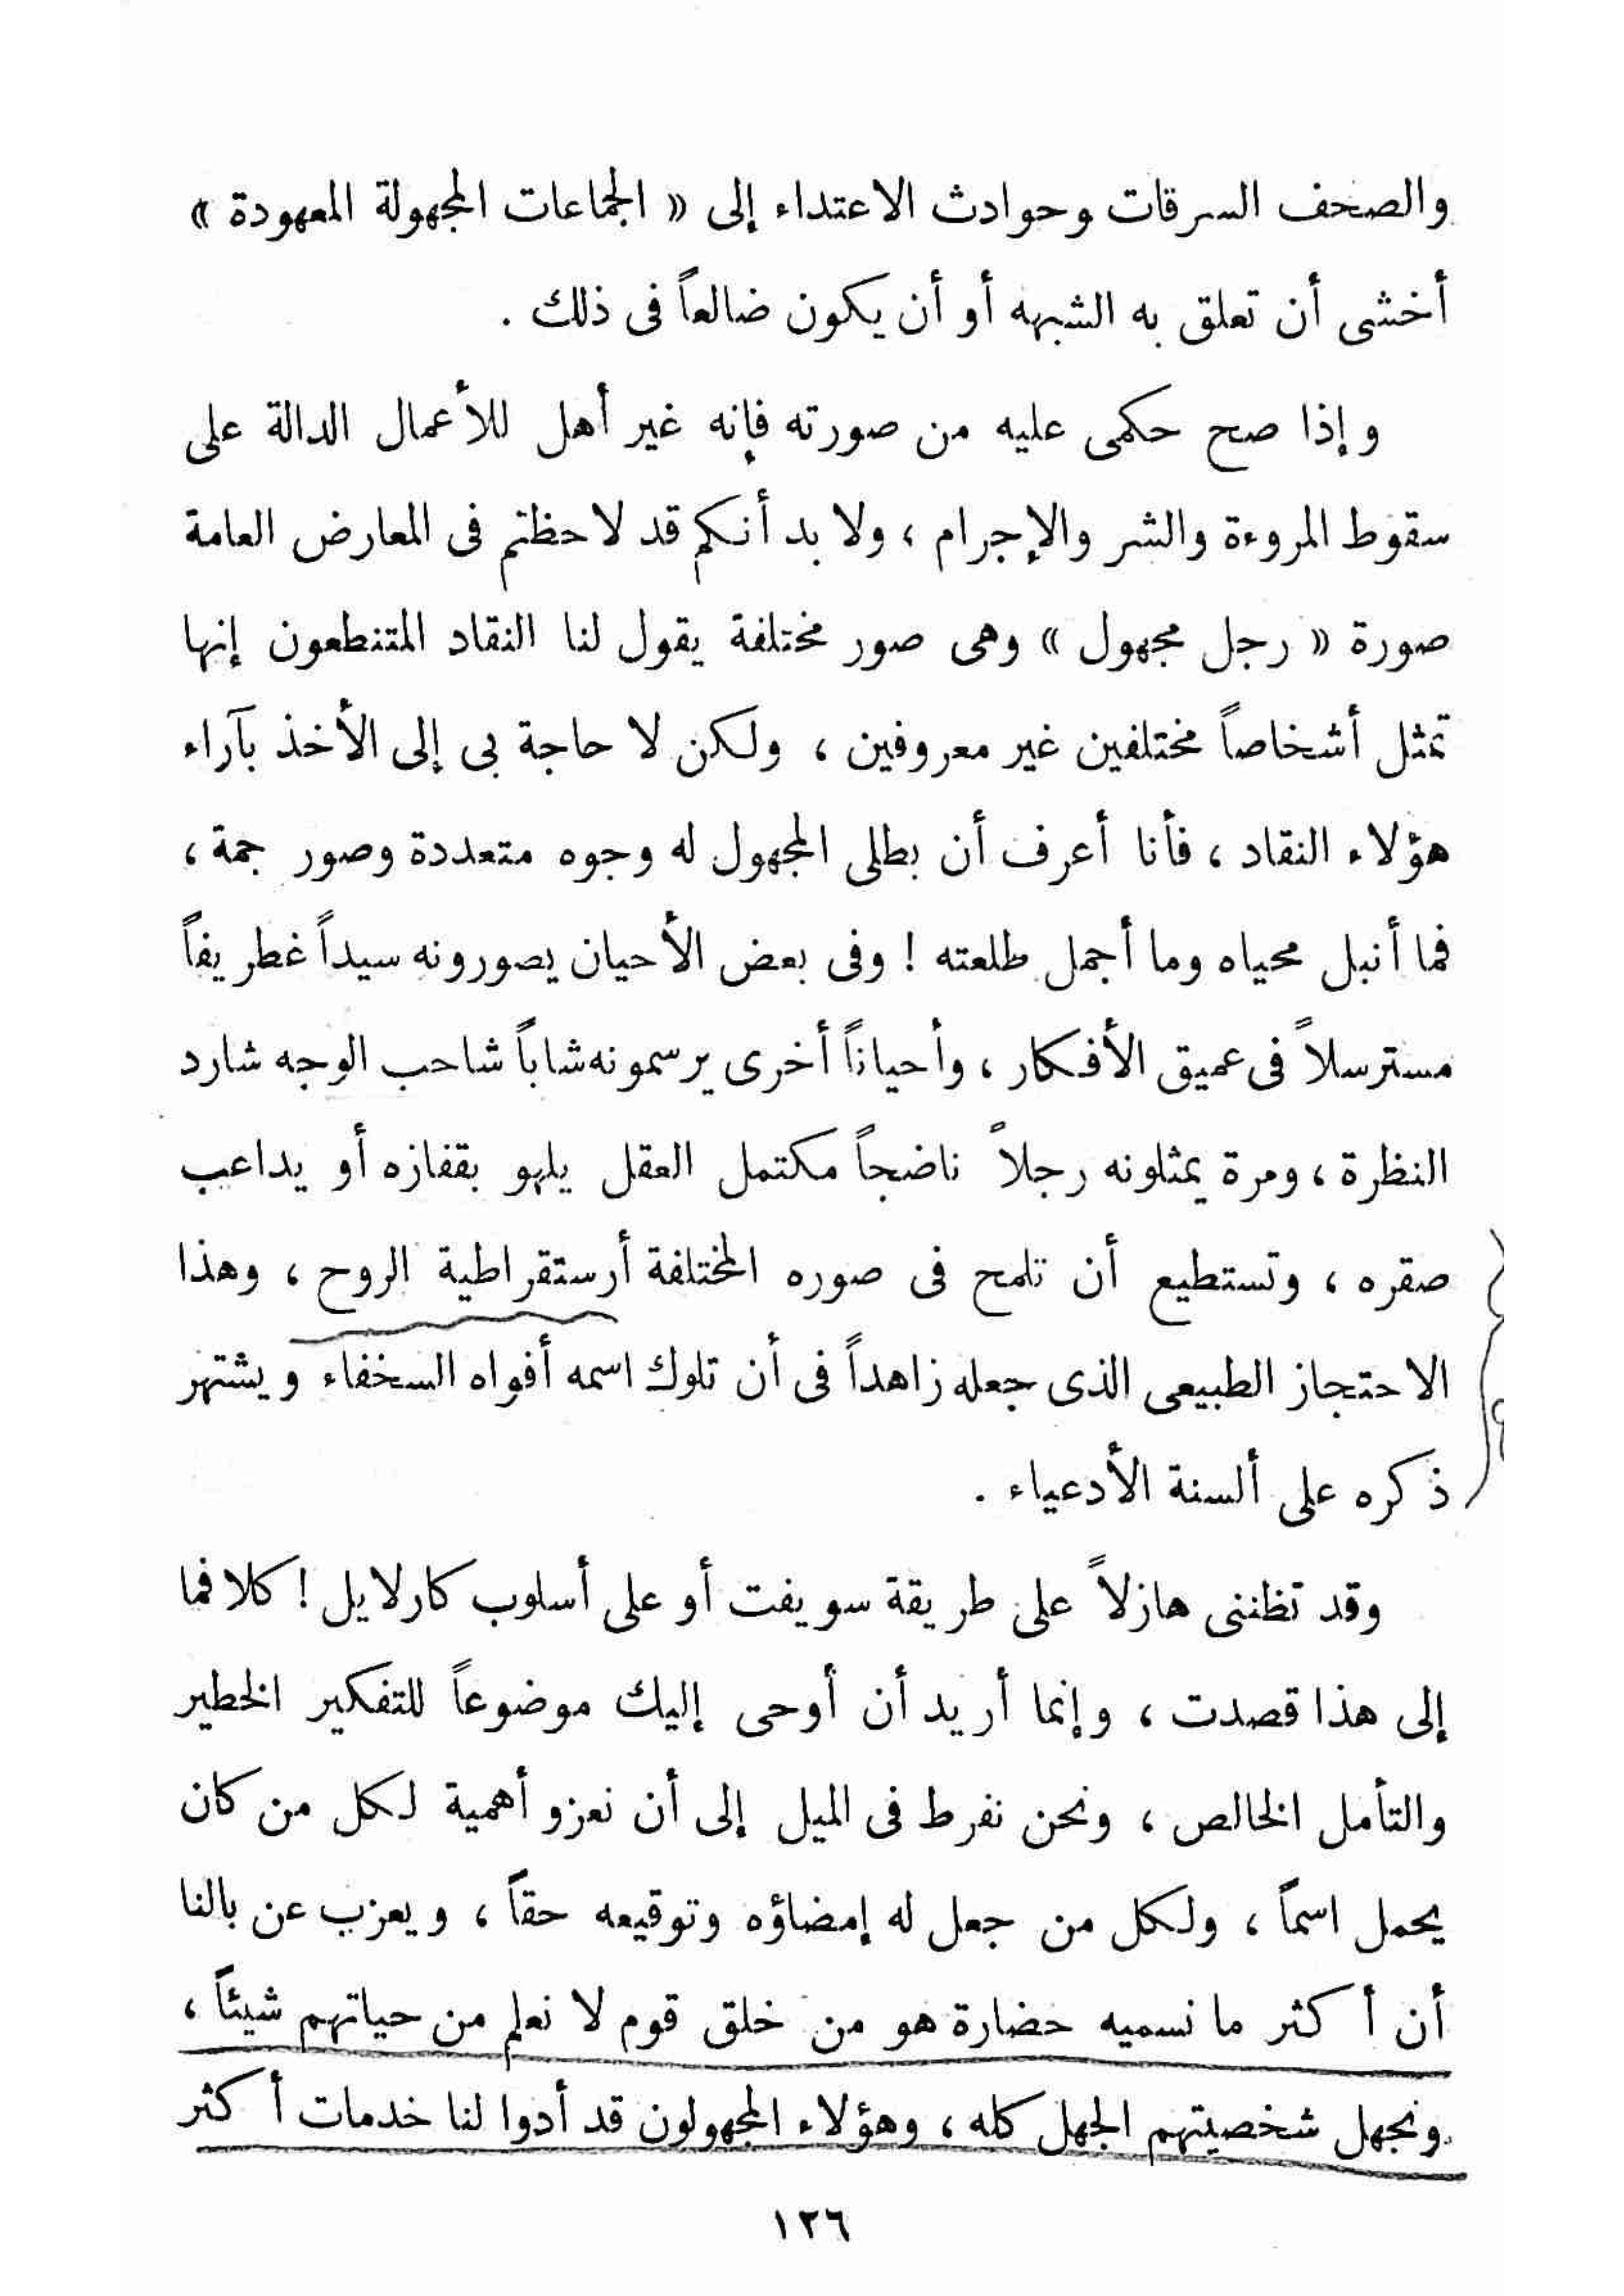 والصحف السرقات وحوادث الاعتداء إلى « الجماعات المجهولة المعهودة »
أخشى أن تعلق به الشبهه أو أن يكون ضالعاً فى ذلك .
وإذا صح حكمى عليه من صورته فإنه غير أهل للأعمال الدالة على
سقوط المروءة والشر والإجرام ، ولا بد أنكم قد لاحظتم فى المعارض العامة
صورة « رجل مجهول » وهى صور مختلفة يقول لنا النقاد المتنطعون إنها
تمثل أشخاصاً مختلفين غير معروفين ، ولكن لا حاجة بى إلى الأخذ بآراء
هؤلاء النقاد ، فأنا أعرف أن بطلى المجهول له وجوه متعددة وصور جمة ،
فما أنبل محياه وما أجمل طلعته ! وفى بعض الأحيان يصورونه سيداً غطريفاً
مسترسلاً فى عميق الأفكار ، وأحياناً أخرى يرسمونه شاباً شاحب الوجه شارد
النظرة ، ومرة يمثلونه رجلاً ناضجاً مكتمل العقل يلهو بقفازه أو يداعب
صقره ، وتستطيع أن تلمح فى صوره المختلفة أرستقراطية الروح ، وهذا
الاحتجاز الطبيعى الذى جعله زاهداً فى أن تلوك اسمه أفواه السخفاء ويشتهر
ذكره على ألسنة الأدعياء .
وقد تظننى هازلاً على طريقة سويفت أو على أسلوب كارلايل ! كلا فما
إلى هذا قصدت ، وإنما أريد أن أوحى إليك موضوعاً للتفكير الخطير
والتأمل الخالص ، ونحن نفرط فى الميل إلى أن نعزو أهمية لكل من كان
يحمل اسماً ، ولكل من جعل له إمضاؤه وتوقيعه حقاً ، ويعزب عن بالنا
أن أكثر ما نسميه حضارة هو من خلق قوم لا نعلم من حياتهم شيئاً ،
ونجهل شخصيتهم الجهل كله ، وهؤلاء المجهولون قد أدوا لنا خدمات أكثر
١٢٦